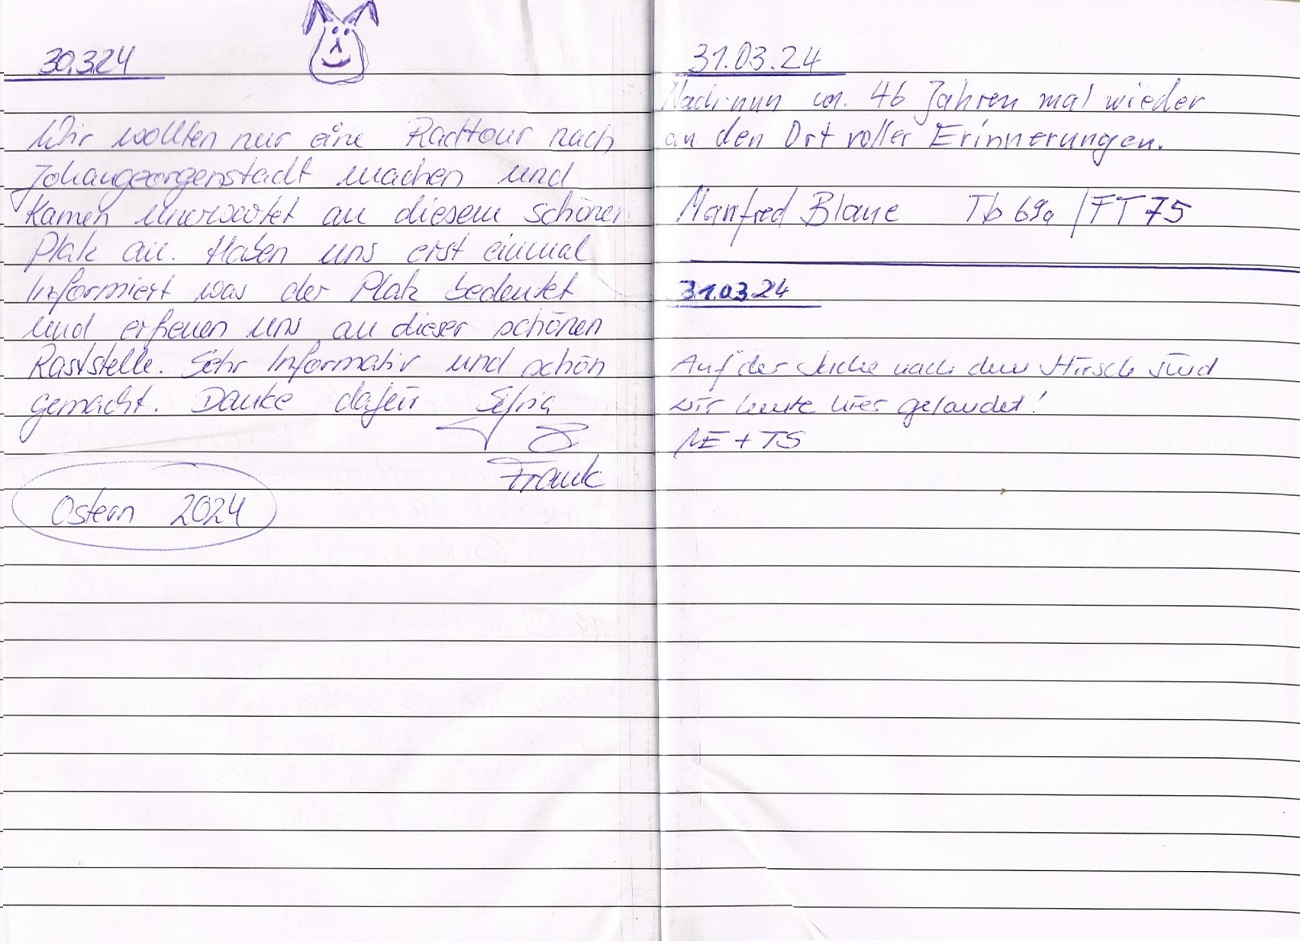 30.3.24
Wir wollten nur eine Radtour nach
Johangeorgenstadt machen und
Kamen unerwartet an diesem schönen
Platz an. Haben uns erst einmal
Informiert was der Platz bedeutet
und erfreuen uns an dieser schönen
Raststelle. Sehr Informativ und schön
gemacht. Danke dafür
Frank
Ostern 2024
31.03.24
Nach nun ca. 46 Jahren mal wieder
an den Ort voller Erinnerungen.
Manfred Blaue Tb 69a / FT 75
31.03.24
Auf der Suche nach dem Hirsch sind
wir heute hier gelandet!
+ TS